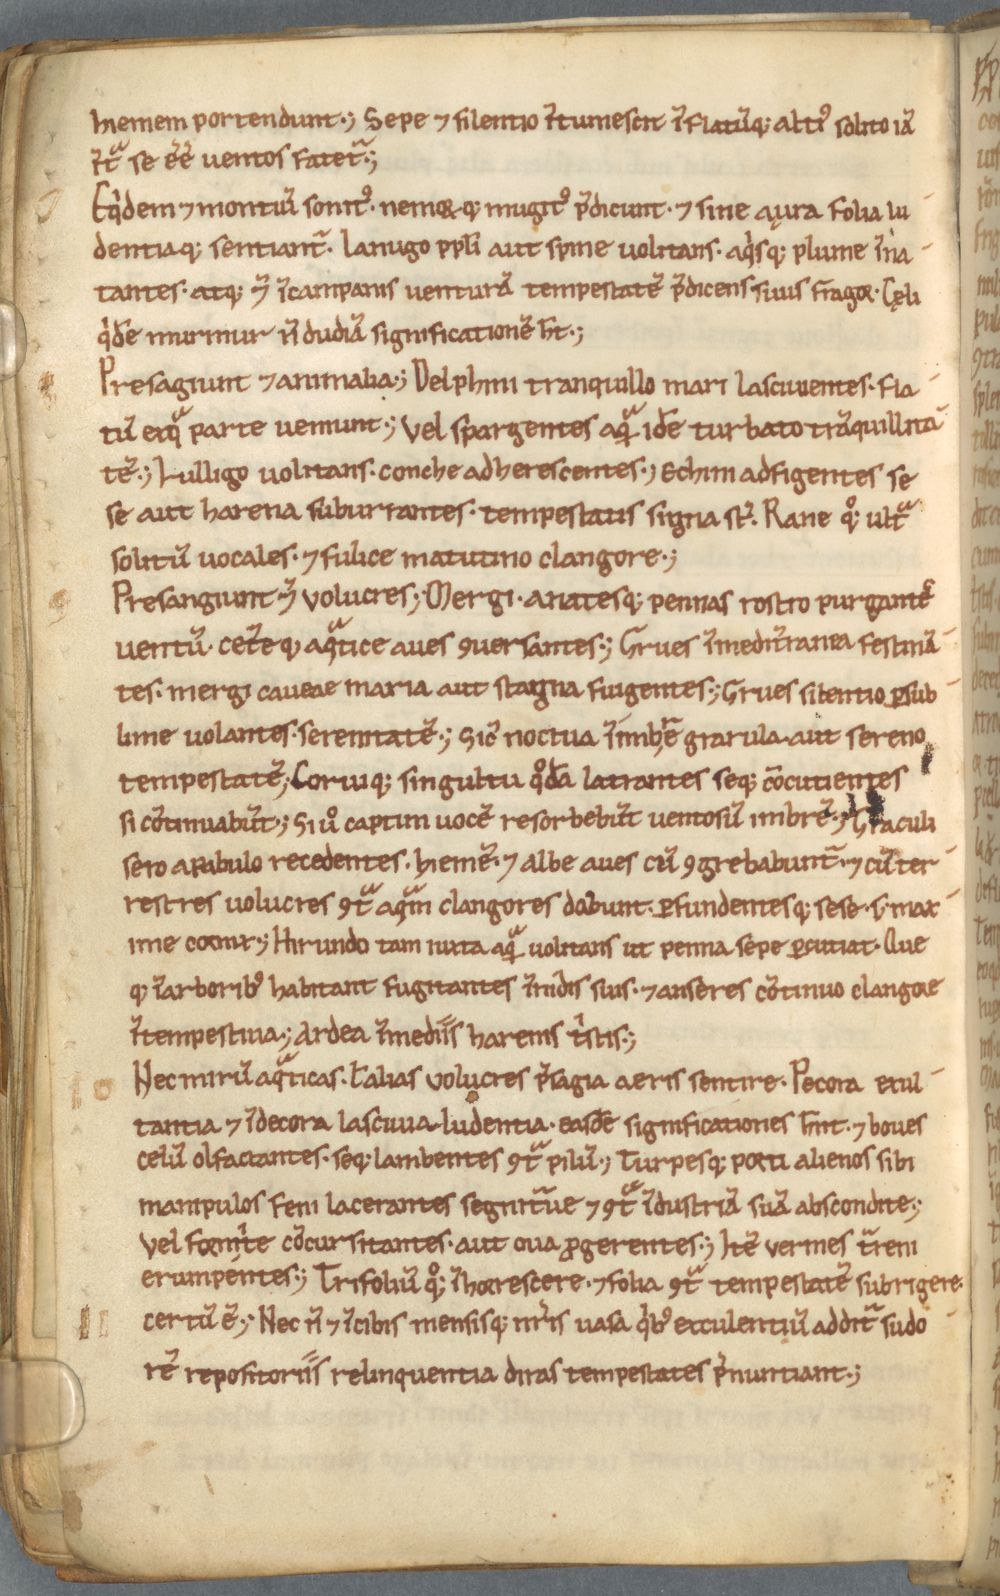 hiemem portendunt·; Sepe ⁊ silentio ĩtumescit ĩflatũq; altiꝰ solito iã
ĩtᷓ se ẽẽ uentos fatet᷑·;
Eqͥdem ⁊ montiũ sonitꝰ· nemoꝝq; mugitꝰ p̃dicunt· ⁊ sine aura folia lu
dentiaq; sentiant᷑· lanugo ppli aut spine uolitans· aqͥsq; plume ĩna
tantes· atq; ⁊̃ ĩcampanis uenturã tempestatẽ p̃dicens suus fragor· Cęli
qͥdẽ murmur ñ dudiã significationẽ ħt·;
Presagiunt ⁊ animalia·; Delphini tranquillo mari lasciuientes· fla
tũ exqᷓ parte ueniunt·; Vel spargentes aqᷓ idẽ turbato trãquillita
tẽ·; Lulligo uolitans· conche adherescentes·; Echini adfigentes se
se aut harena suburrantes· tempestatis signa st̃· Rane qͦ; ultᷓ
solitũ uocales· ⁊ fulice matutino clangore·;
Presangiunt ⁊̃ uolucres·; Mergi· anatesq; pennas rostro purgantẽ
uentũ· cet̃eq; aqᷓtice aues ꝯuersantes·; Grues ĩmedit̃ranea festinã
tes· mergi caueae maria aut stagna fuigentes·; Grues silentio ꝑsub
lime uolantes· serenitatẽ·; Sic̃ noctua ĩimbrẽ grarula· aut sereno
tempestatẽ; Coruiq; singultu qͦdã latrantes seq; cõcutientes
si cõtinuabũt·; Si uͦ captim uocẽ resorbebũt uentosũ imbrẽ·; Graculi
sero apabulo recedentes· hiemẽ· ⁊ albe aues cũ ꝯgrebabunt᷑· ⁊ cũ ter
restres uolucres ꝯtᷓ aqᷓm clangores dabunt· ꝑfundentesq; sese· s; max
ime cornix·; Hirundo tam iuxta aqᷓ uolitans ut penna sepe ꝑcutiat· Que
q; ĩarboribꝰ habitant fugitantes ĩnidis suis· ⁊ anseres cõtinuo clangore
ĩtempestiua·; Ardea ĩmediis harenis tͥstis·;
Nec mirũ aqᷓticas· ł alias uolucres p̃sagia aeris sentire· Pecora exul
tantia ⁊ ĩdecora lasciuia ludentia· easdẽ significationes ħnt· ⁊ boues
celũ olfactantes· seq; lambentes ꝯtᷓ pilũ·; Turpesq; porci alienos sibi
manipulos feni lacerantes segnit᷑ue ⁊ ꝯtᷓ ĩdustriã suã abscondite·;
Vel formͥce cõcursitantes· aut oua ꝓgerentes·; Itẽ uermes t᷑reni
erumpentes·; Trifoliũ qͦ; ĩhorrescere· ⁊ folia ꝯtᷓ tempestatẽ subrigere·
certũ ẽ·; Nec ñ ⁊ ĩcibis mensisq; nr̃is uasa qͥbꝰ exculentiũ addit᷑ sudo
rẽ repositoriis relinquentia diras tempestates p̃nuntiant·;